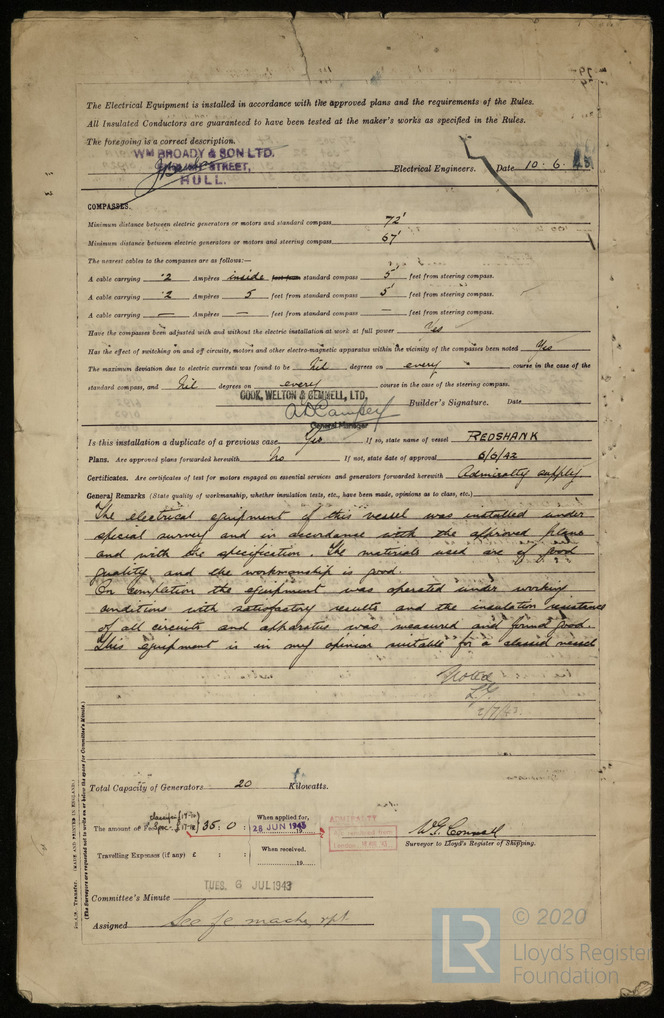 The Electrical Equipment is installed in accordance with the approved plans and the requirements of the Rules.
All Insulated Conductors are guaranteed to have been tested at the maker's works as specified in the Rules.
The foregoing is a correct description.
WM BROADY & SON LTD.
STREET,
HULL.
Electrical Engineers. Date 10.6.43
COMPASSES.
Minimum distance between electric generators or motors and standard compass 72'
Minimum distance between electric generators or motors and steering compass 67'
The nearest cables to the compasses are as follows:—
A cable carrying .2 Ampères inside feet from standard compass 5' feet from steering compass.
A cable carrying .2 Ampères 5 feet from standard compass 5' feet from steering compass.
A cable carrying — Ampères — feet from standard compass — feet from steering compass.
Have the compasses been adjusted with and without the electric installation at work at full power Yes
Has the effect of switching on and off circuits, motors and other electro-magnetic apparatus within the vicinity of the compasses been noted Yes
The maximum deviation due to electric currents was found to be Nil degrees on every course in the case of the
standard compass, and Nil degrees on every course in the case of the steering compass.
COOK, WELTON & GEMMELL, LTD.
Builder's Signature. Date
General Manager
Is this installation a duplicate of a previous case Yes If so, state name of vessel REDSHANK
Plans. Are approved plans forwarded herewith No If not, state date of approval 6/6/42
Certificates. Are certificates of test for motors engaged on essential services and generators forwarded herewith Admiralty supply
General Remarks (State quality of workmanship, whether insulation tests, etc., have been made, opinions as to class, etc.)
The electrical equipment of this vessel was installed under
special survey and in accordance with the approved plans
and with the specification. The materials used are of good
quality and the workmanship is good.
On completion the equipment was operated under working
conditions with satisfactory results and the insulation resistance
of all circuits and apparatus was measured and found good.
This equipment is in my opinion suitable for a classed vessel
Noted
2/7/43.
Total Capacity of Generators 20 Kilowatts.
The amount of Fee £ 35 : 0 : When applied for, 28 JUN 1943
Travelling Expenses (if any) £ : : When received, 19
ADMIRALTY
W.G. Connell
Surveyor to Lloyd's Register of Shipping.
Committee's Minute TUES. 6 JUL 1943
Assigned See fe mache. rpt.
Transfer. (MADE AND PRINTED IN ENGLAND.)
(The Surveyors are requested not to write on or below the space for Committee's Minute.)
LR
© 2020
Lloyd's Register
Foundation